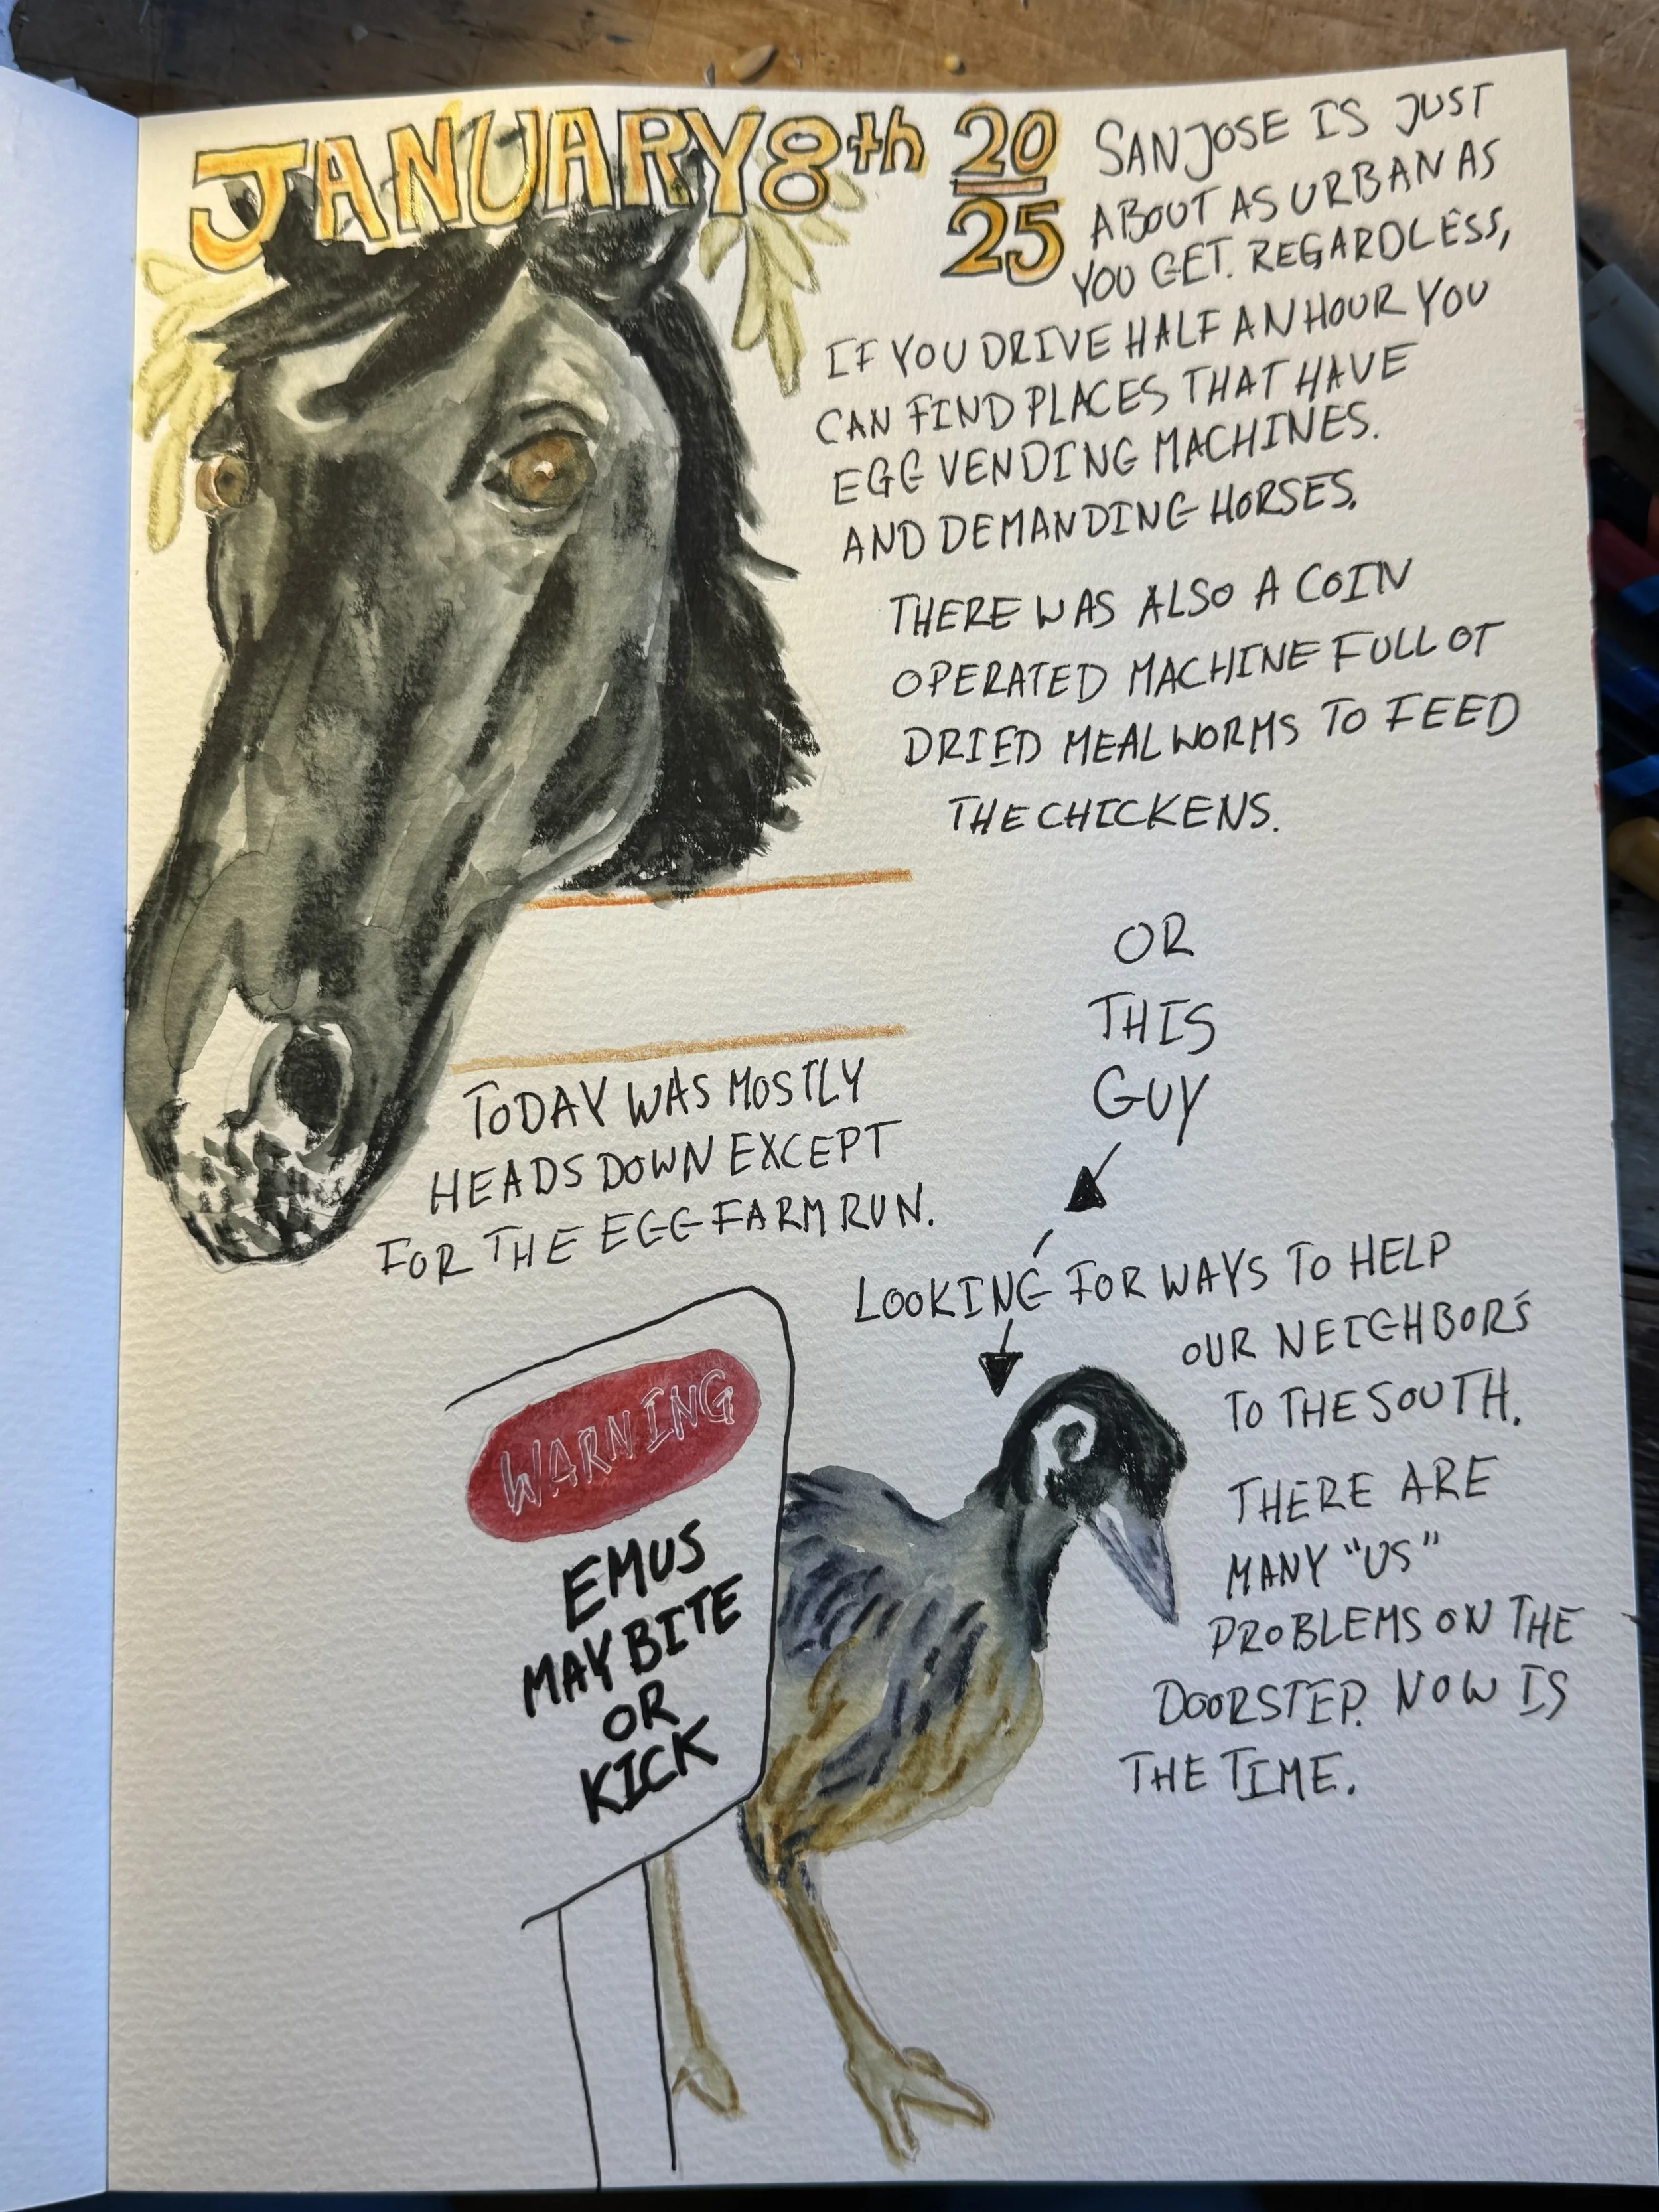 JANUARY 8th 20
25
SAN JOSE IS JUST
ABOUT AS URBAN AS
YOU GET. REGARDLESS,
IF YOU DRIVE HALF AN HOUR YOU
CAN FIND PLACES THAT HAVE
EGG VENDING MACHINES.
AND DEMANDING HORSES.
THERE WAS ALSO A COIN
OPERATED MACHINE FULL OT
DRIED MEALWORMS TO FEED
THE CHICKENS.
OR
THIS
GUY
TODAY WAS MOSTLY
HEADS DOWN EXCEPT
FOR THE EGG FARM RUN.
LOOKING FOR WAYS TO HELP
OUR NEIGHBORS
TO THE SOUTH.
THERE ARE
MANY "US"
PROBLEMS ON THE
DOORSTEP. NOW IS
THE TIME.
WARNING
EMUS
MAY BITE
OR
KICK